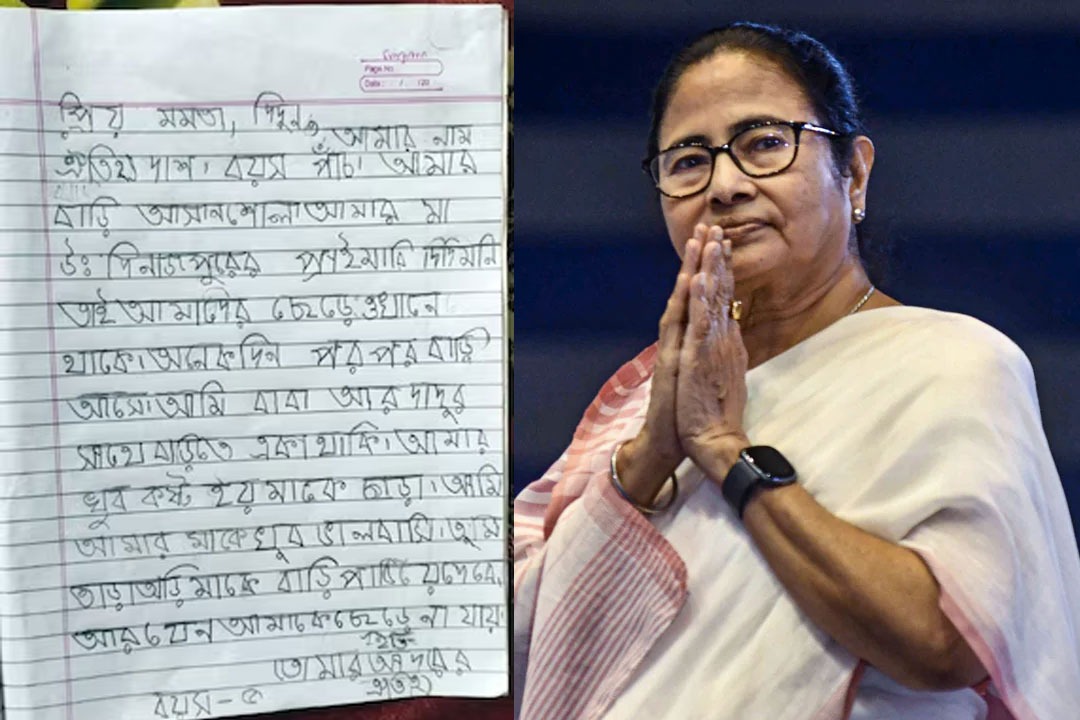 Evergreen
Page No.
Date: / /20
প্রিয় মমতা, দিদুন,
আমার নাম
ঐতিহ্য দাশ। বয়স পাঁচ। আমার
বাড়ি আসানশোল। আমার মা
উঃ দিনাজপুরের প্রাইমারি দিদিমনি
তাই আমাদের ছেড়ে ওখানে
থাকে। অনেকদিন পর পর বাড়ি
আসে। আমি বাবা আর দাদুর
সাথে বাড়িতে একা থাকি। আমার
খুব কষ্ট হয় মাকে ছাড়া। আমি
আমার মাকে খুব ভালবাসি। তুমি
তাড়াতাড়ি মাকে বাড়ি পাঠিয়ে দেবে,
আর যেন আমাকে ছেড়ে না যায়।
ইতি
তোমার আদরের
ঐতিহ্য
বয়স - ৫